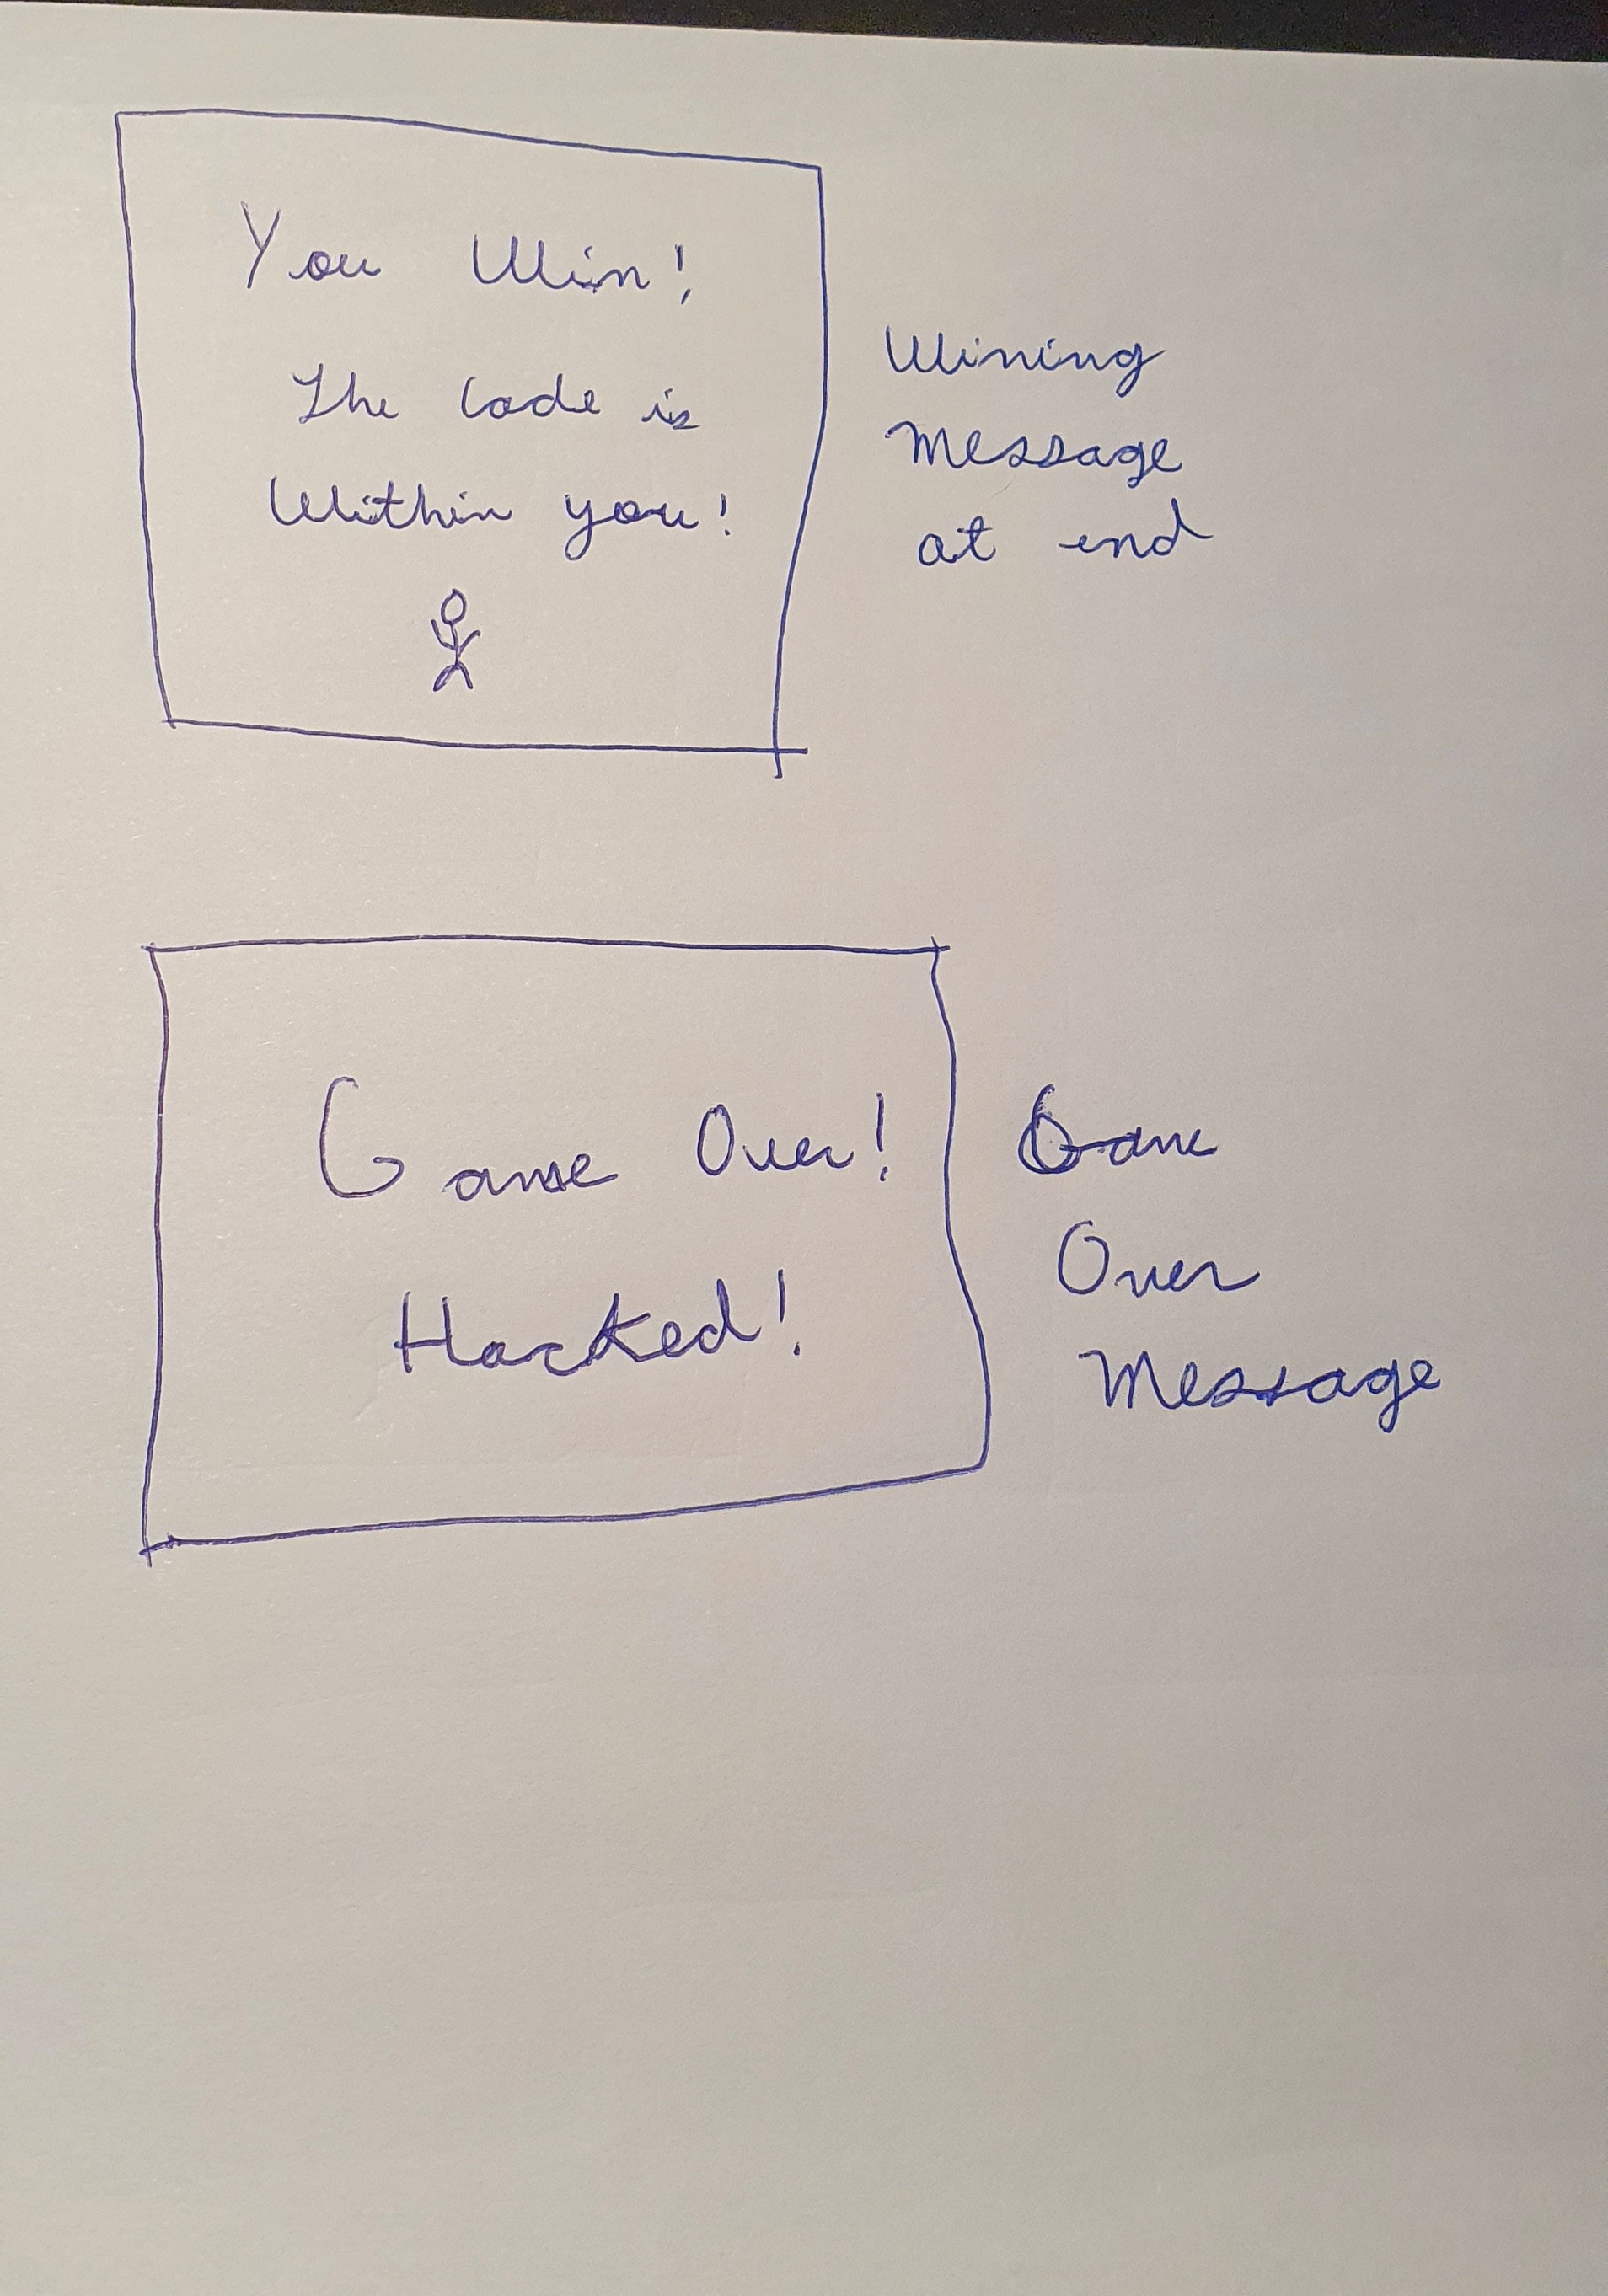 You Win!
The Code is
Within you!
Wining
Message
at end
Game Over!
Hacked!
Game
Over
Message